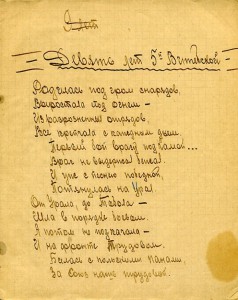 9 лет
Девять лет 5й Витебской
Родилась под гром снарядов,
Выростала под огнем –
Из разрозненных отрядов,
Все крепчала с каждым днем.
Первый бой врагу под
Враг не выдержал
И уже с песнею победной,
Потянулась на Урал.
От Урала, до Тобола –
Шла в порядке боевом.
А потом не подкачала –
И на фронте Трудовом.
Билась с польскими панами,
За Союз наш трудовой.